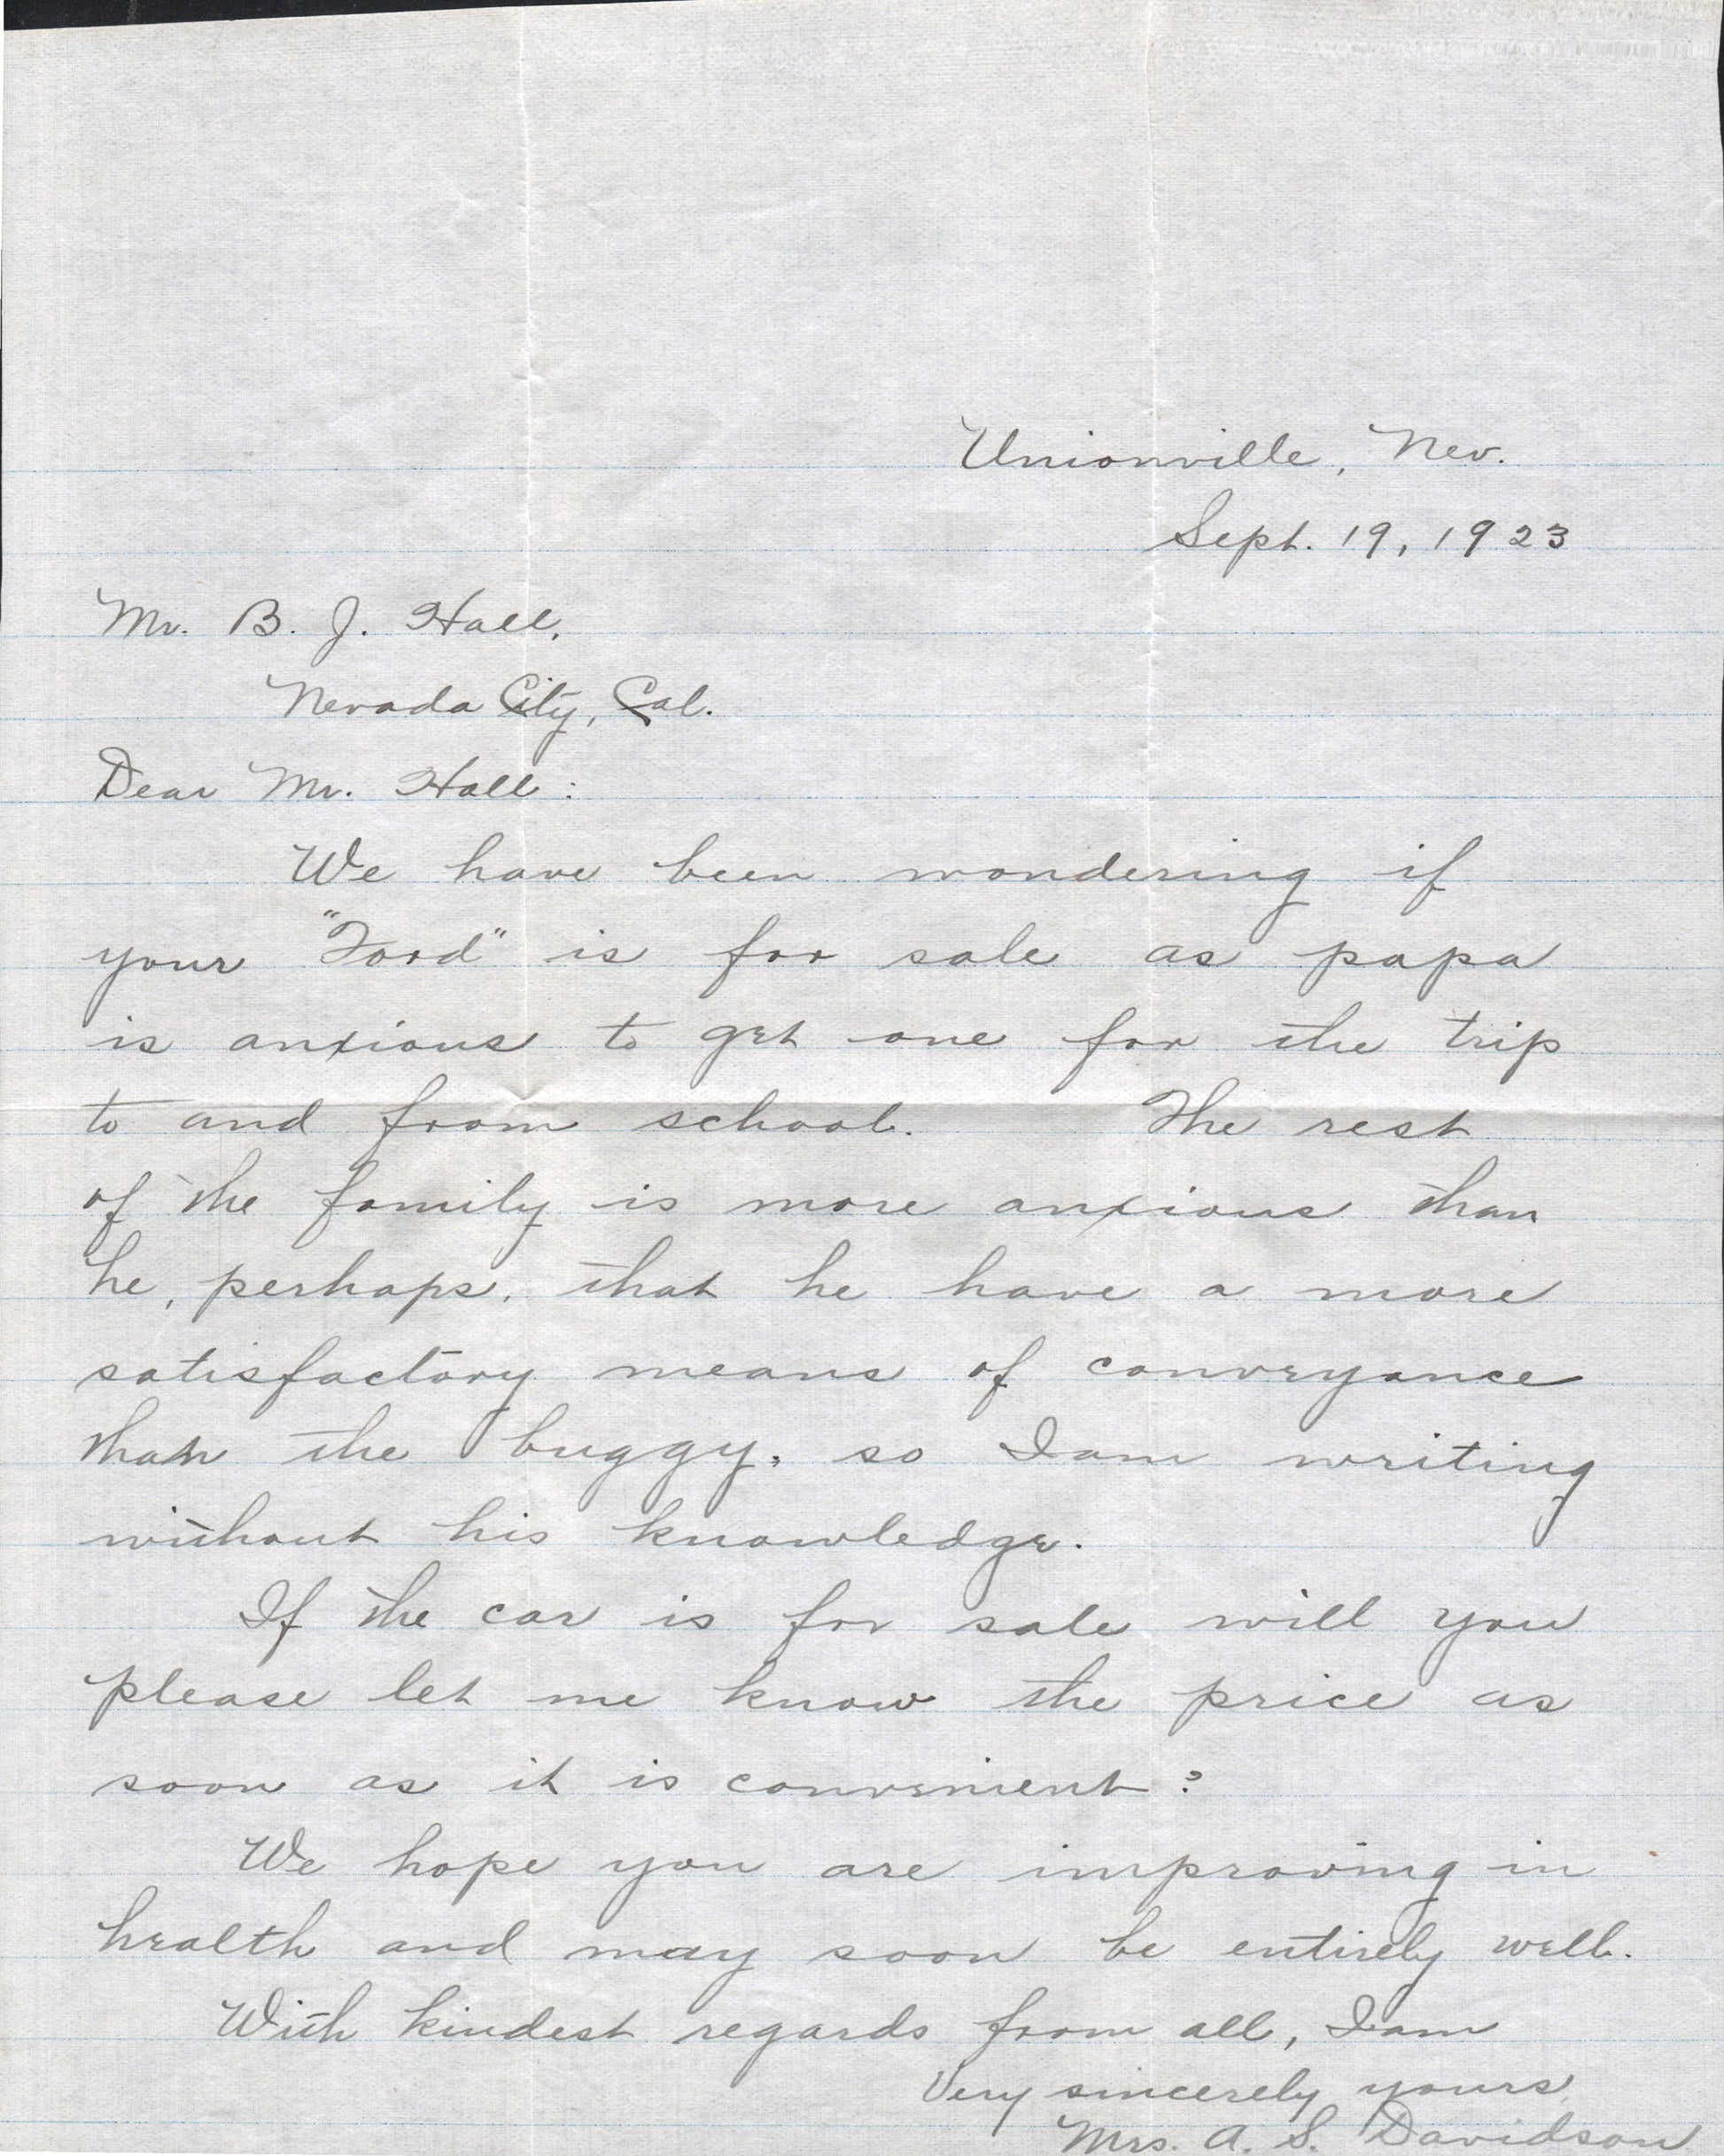 Unionville, Nev.
Sept. 19, 1923
Mr. B. J. Hall,
Nevada City, Cal.
Dear Mr. Hall:
We have been wondering if
your "Ford" is for sale as papa
is anxious to get one for the trip
to and from school. The rest
of the family is more anxious than
he, perhaps, that he have a more
satisfactory means of conveyance
than the buggy, so I am writing
without his knowledge.
If the car is for sale will you
please let me know the price as
soon as it is convenient?
We hope you are improving in
health and may soon be entirely well.
With kindest regards from all, I am
Very sincerely yours
Mrs. A. S. Davidson